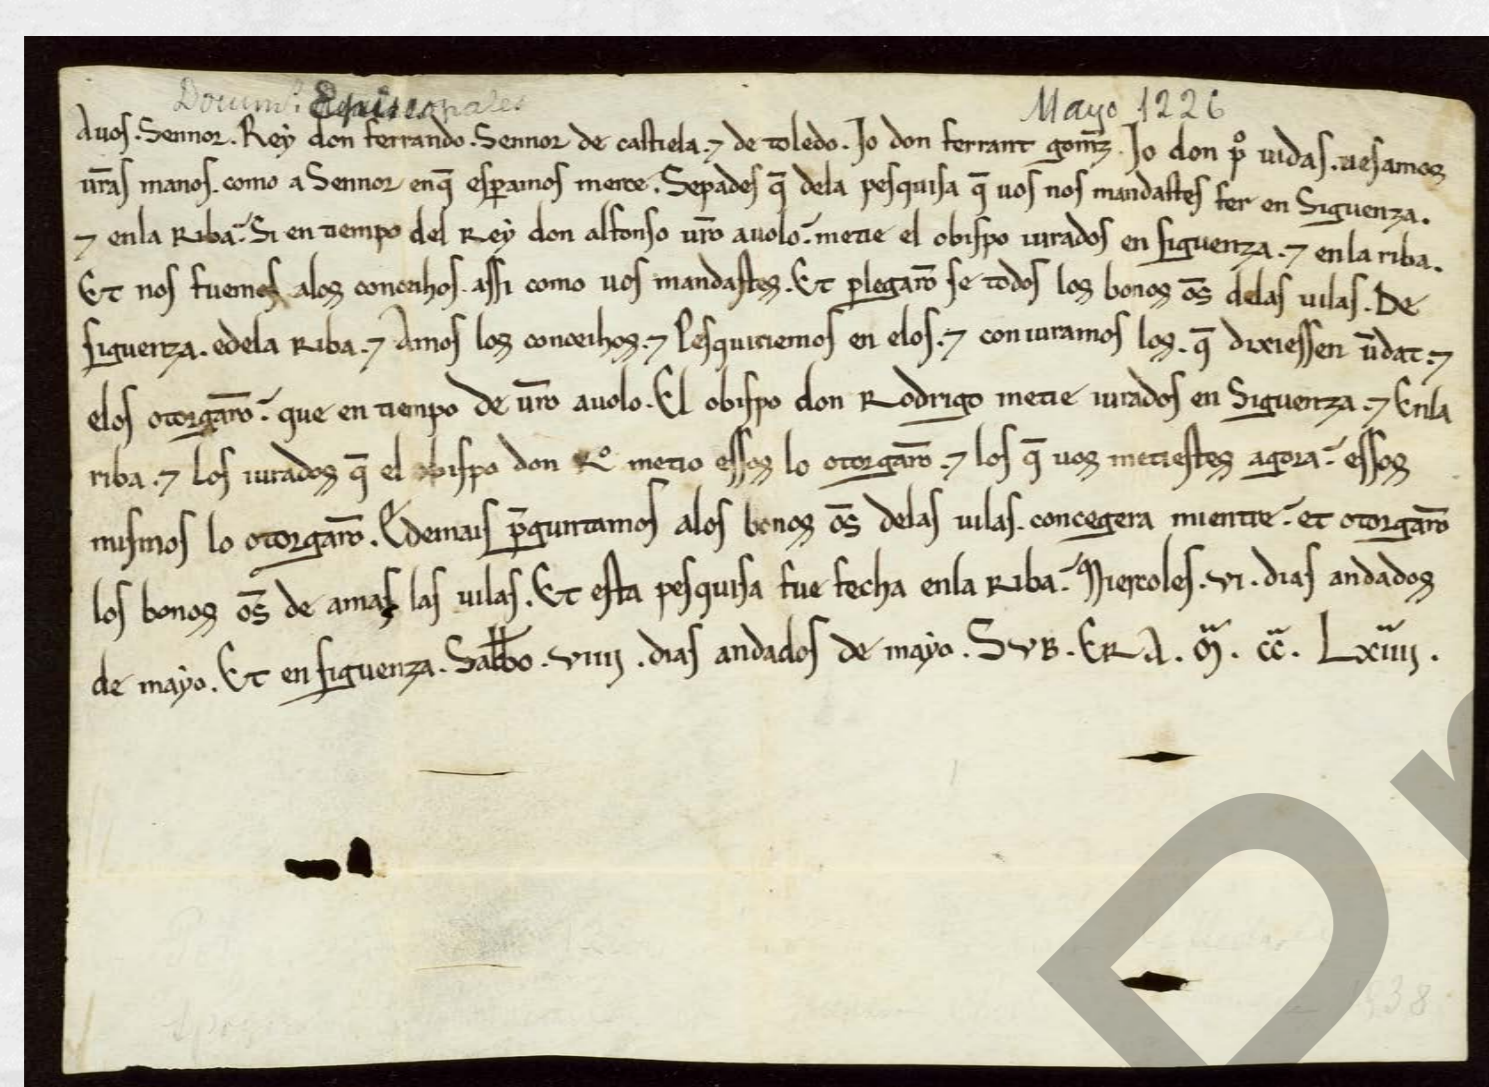 Docum.s Episcopales
Mayo 1226
Auos. Sennor. Rey don ferrando. Sennor de castiela. ⁊ de toledo. Io don ferrant gom̄z. Io don p̊ uidas. uesamos
ur̄as manos. como a Sennor enq̄ esp̄amos merce. Sepades q̄ dela pesquisa q̄ uos nos mandastes fer en Siguenza.
⁊ enla Riba. Si en tiempo del Rey don alfonso ur̄o auolo. metie el obispo iurados en siguenza. ⁊ enla riba.
Et nos fuemos alos conceihos. assi como uos mandastes. Et plegarō se todos los bonos oƀs delas uilas. De
siguenza. edela Riba. ⁊ Amos los conceihos. ⁊ Pesquiriemos en elos. ⁊ coniuramos los. q̄ dixiessen ūdat. ⁊
elos otorgarō. que en tiempo de ur̄o auolo. El obispo don Rodrigo metie iurados en Siguenza. ⁊ Enla
riba. ⁊ los iurados q̄ el obispo don R̊ metio essos lo otorgarō. ⁊ los q̄ uos metiestes agora. essos
mismos lo otorgarō. Edemais p̄guntamos alos bonos ōs delas uilas. concegera mientre. et otorgarō
los bonos ōs de amas las uilas. Et esta pesquisa fue fecha enla Riba. Miercoles. vi. dias andados
de mayo. Et en siguenza. Sabbo. viiii. dias andados de mayo. SVB. ERA. M. CC. Lxiiii.
1938
D